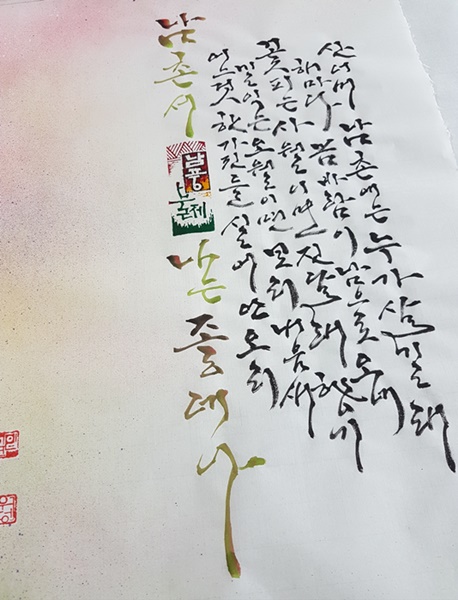 산너머 남촌에는 누가 살길래
해마다 봄바람이 남으로 오네
꽃피는 사월이면 진달래 향기
밀익는 오월이면 보리 내음새
어느것 한가진들 실어 안오리
남촌서 남풍 불제 나는 좋데나